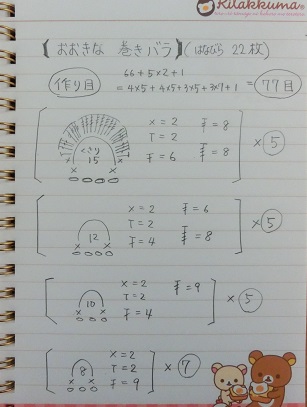 Rilakkuma
【おおきな 巻きバラ】(はなびら 22枚)
作り目 66+5×2+1
=4×5+4×5+3×5+3×7+1 = 77目
くさり 15 ×=2 T=2 干=6 干=8 干=8 ×5
12 ×=2 T=2 干=4 干=6 干=8 ×5
10 ×=2 T=2 干=4 干=9 ×5
8 ×=2 T=2 干=9 ×7